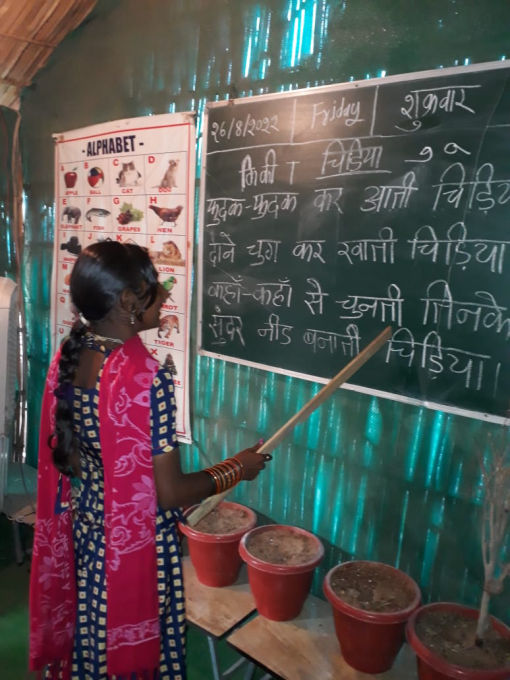 - ALPHABET -
A B C D
APPLE BALL CAT DOG
ELEPHANT FISH GRAPES HEN
LION
TIGER
२६/8/२०२२ Friday शुक्रवार
चिड़िया
फुदक-फुदक कर आती चिड़िय
दाने चुग कर खाती चिड़िया
कहाँ-कहाँ से चुनती तिनके
सुंदर नीड बनाती चिड़िया।